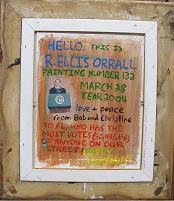 HELLO THIS IS
R. ELLIS ORRALL
PAINTING NUMBER 132
MARCH 28
YEAR 2004
love + peace
from Bob and Christine
TO AL, WHO HAS THE
MOST VOTES
OF ANYONE ON OUR
STREET